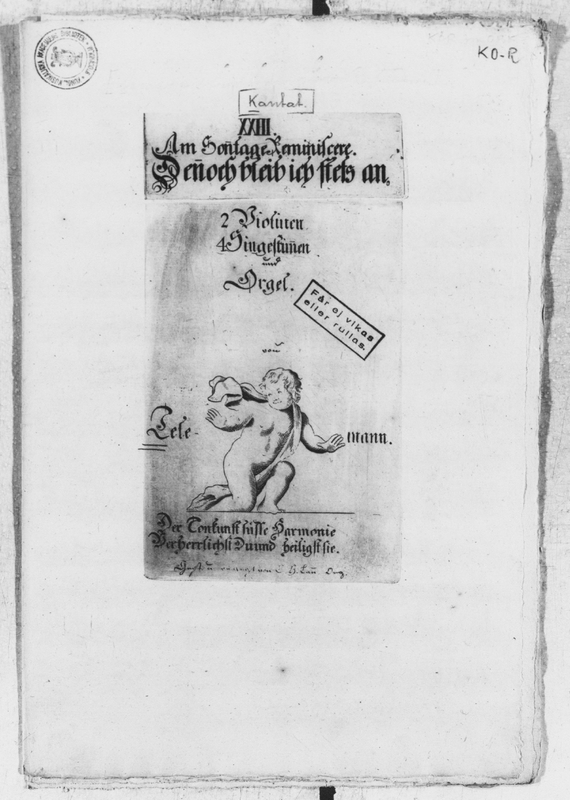 KO-R
Kantat.
XXIII.
Am Son̄tage Reminiscere.
Den̄och bleib ich stets an.
2 Violinen
4 Singestim̄en
und
Orgel.
Får ej vikas
eller rullas.
von
Tele-
mann.
Der Tonkunst süsse Harmonie
Verherrlichst Du und heiligst sie.